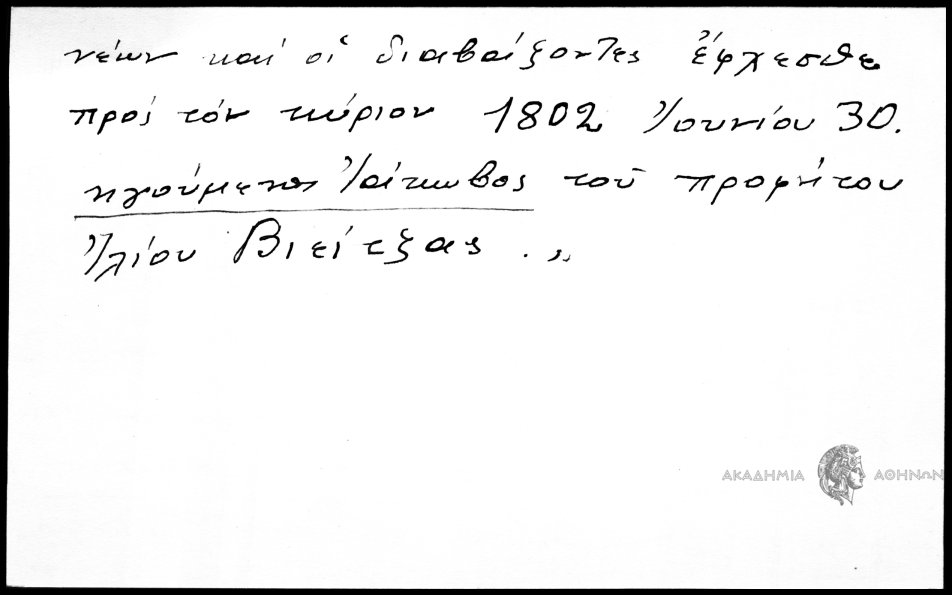 νέων καί οἱ διαβαίζοντες ἔφχεσθε
πρός τόν κύριον 1802 Ἰουνίου 30.
ηγούμενος Ἰάκωβος τοῦ προφήτου
Ἠλίου Βιείτζας . „
ΑΚΑΔΗΜΙΑ ΑΘΗΝΩΝ